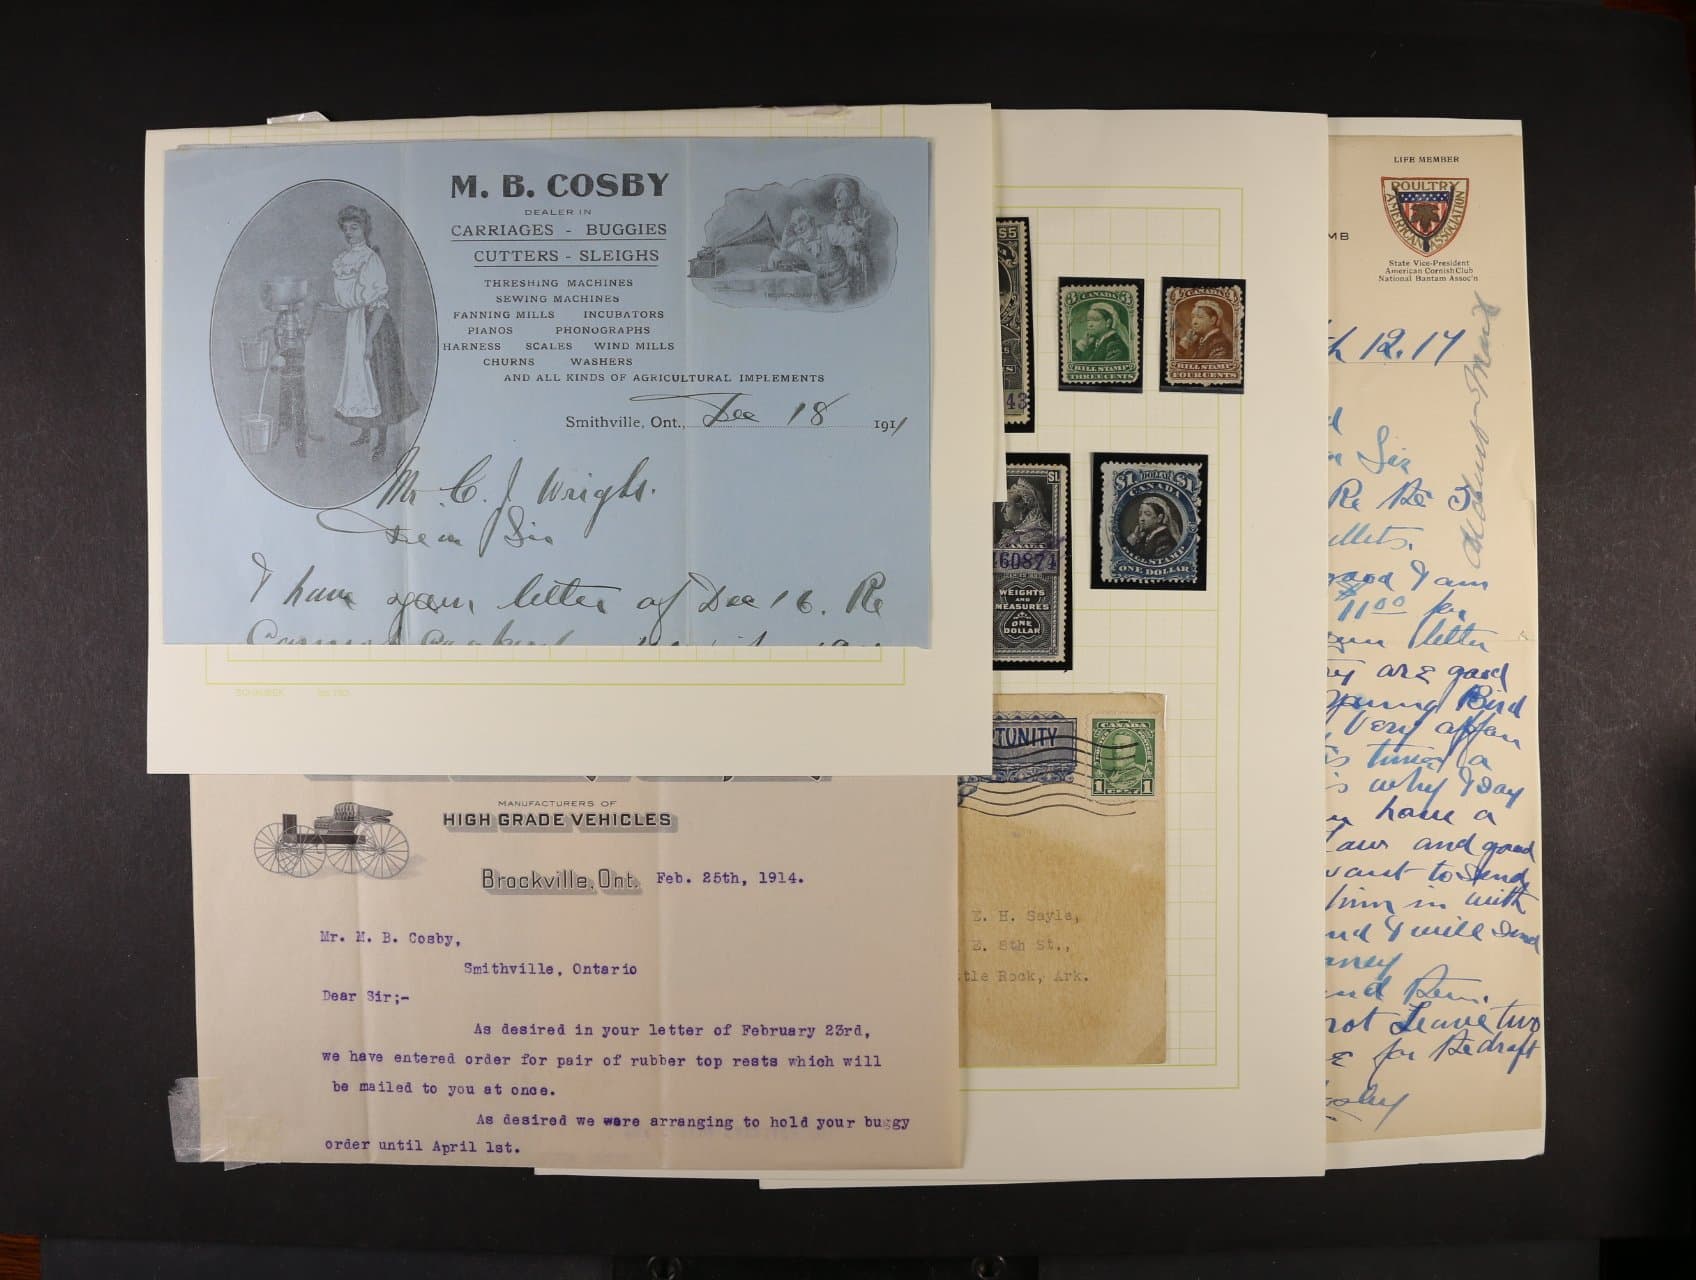 M. B. COSBY
DEALER IN
CARRIAGES - BUGGIES
CUTTERS - SLEIGHS
THRESHING MACHINES
SEWING MACHINES
FANNING MILLS INCUBATORS
PIANOS PHONOGRAPHS
HARNESS SCALES WIND MILLS
CHURNS WASHERS
AND ALL KINDS OF AGRICULTURAL IMPLEMENTS
Smithville, Ont., Dec 18 1911
Mr C. J. Wright.
Dear Sir
I have your letter of Dec 16. Re
MANUFACTURERS OF
HIGH GRADE VEHICLES
Brockville, Ont. Feb. 25th, 1914.
Mr. M. B. Cosby,
Smithville, Ontario
Dear Sir;-
As desired in your letter of February 23rd,
we have entered order for pair of rubber top rests which will
be mailed to you at once.
As desired we were arranging to hold your buggy
order until April 1st.
43
3 CANADA 3
BILL STAMP
THREE CENTS
4 CANADA 4
BILL STAMP
FOUR CENTS
$1.
CANADA
460874
WEIGHTS
AND
MEASURES
ONE
DOLLAR
$1 DOLLAR $1
CANADA
BILL STAMP
ONE DOLLAR
TUNITY
CANADA
1 CENT 1
E. H. Sayle,
E. 8th St.,
tle Rock, Ark.
LIFE MEMBER
POULTRY
AMERICAN ASSOCIATION
MB
State Vice-President
American Cornish Club
National Bantam Assoc'n
h 12.14
Sir
Re the 3
llets.
good I am
$11.00 for
letter
are good
young Bird
very
is why I say
have a
and good
want to send
him in with
nd I will send
and Rem.
not leave two
for the draft